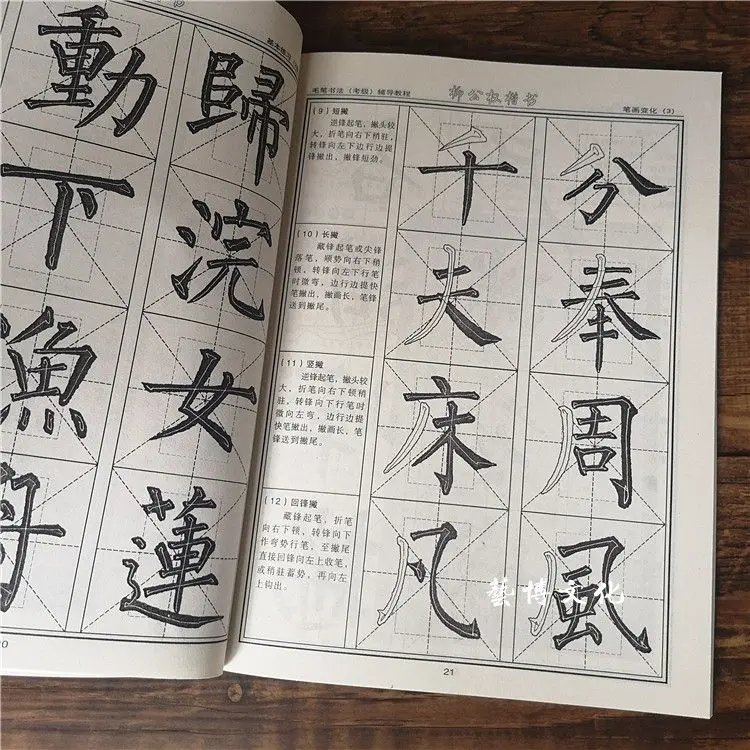 歸
浣
女
蓮
動
下
漁
舟
毛笔书法（考级）辅导教程
柳公权楷书
笔画变化（3）
（9）短撇
逆锋起笔，撇头较
大，折笔向右下稍驻，
转锋向左下边行边提
锋撇出，撇锋短劲。
千
分
（10）长撇
藏锋起笔或尖锋
落笔，顺势向右下稍
顿，转锋向左下行笔
时微弯，边行边提快
笔撇出，撇画长，笔锋
送到撇尾。
夫
奉
（11）竖撇
逆锋起笔，撇头较
大，折笔向右下顿稍
驻，转锋向下行笔时
微向左弯，边行边提
快笔撇出，撇画长，笔
锋送到撇尾。
床
周
（12）回锋撇
藏锋起笔，折笔
向右下顿，转锋向下
作弯势行笔，至撇尾
直接回锋向左上收笔，
或稍驻蓄势，再向左
上钩出。
凡
風
藝博文化
21